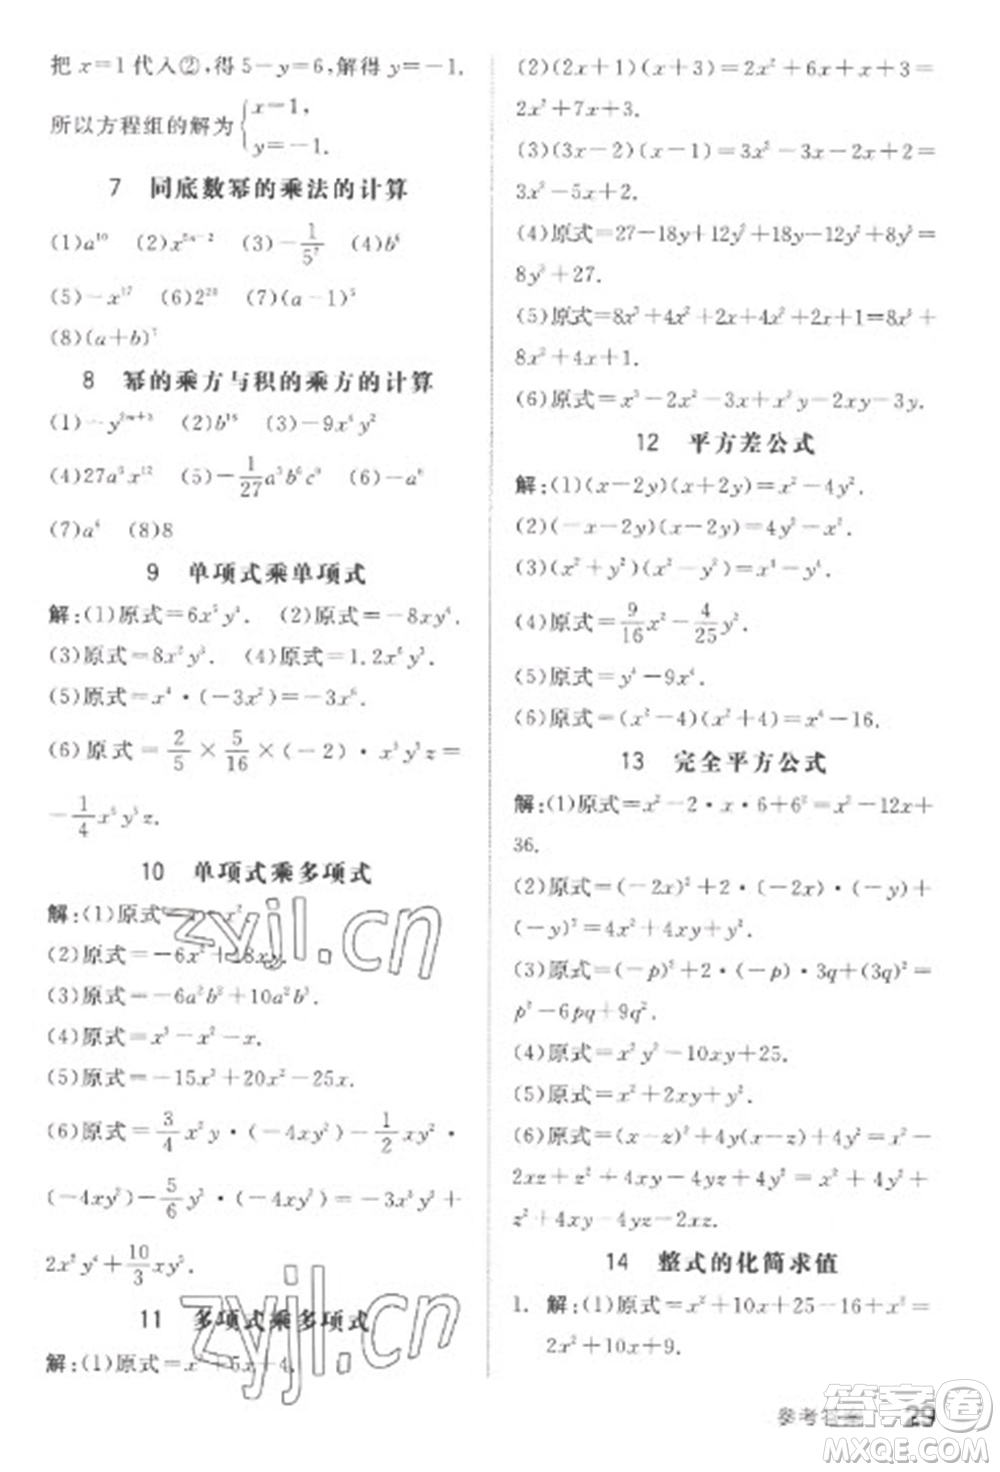 把 x=1 代入②,得 5-y=6,解得 y=-1.
所以方程组的解为{x=1,
y=-1.
7 同底数幂的乘法的计算
(1)a¹⁰ (2)x²ⁿ⁻² (3)-1/5⁷ (4)b⁶
(5)-x¹⁷ (6)2²⁰ (7)(a-1)⁵
(8)(a+b)⁷
8 幂的乘方与积的乘方的计算
(1)-y²ᵐ⁺³ (2)b¹⁵ (3)-9x⁴y²
(4)27a³x¹² (5)-1/27 a³b⁶c⁹ (6)-a⁶
(7)a⁶ (8)8
9 单项式乘单项式
解:(1)原式=6x⁵y⁴. (2)原式=-8xy⁴.
(3)原式=8x²y³. (4)原式=1.2x⁶y⁵.
(5)原式=x⁴·(-3x²)=-3x⁶.
(6)原式=2/5×5/16×(-2)·x⁵y³z=
-1/4 x⁵y³z.
10 单项式乘多项式
解:(1)原式=x-x².
(2)原式=-6x²+18xy.
(3)原式=-6a²b³+10a²b³.
(4)原式=x³-x²-x.
(5)原式=-15x³+20x²-25x.
(6)原式=3/4 x²y·(-4xy²)-1/2·
(-4xy²)-5/6 y³·(-4xy²)=-3x³y³+
2x²y⁴+10/3 xy⁵.
11 多项式乘多项式
解:(1)原式=x²+5x+4.
(2)(2x+1)(x+3)=2x²+6x+x+3=
2x²+7x+3.
(3)(3x-2)(x-1)=3x²-3x-2x+2=
3x²-5x+2.
(4)原式=27-18y+12y²+18y-12y²+8y³=
8y³+27.
(5)原式=8x³+4x²+2x+4x²+2x+1=8x³+
8x²+4x+1.
(6)原式=x³-2x²-3x+x²y-2xy-3y.
12 平方差公式
解:(1)(x-2y)(x+2y)=x²-4y².
(2)(-x-2y)(x-2y)=4y²-x².
(3)(x²+y²)(x²-y²)=x⁴-y⁴.
(4)原式=9/16 x²-4/25 y².
(5)原式=y⁴-9x⁴.
(6)原式=(x²-4)(x²+4)=x⁴-16.
13 完全平方公式
解:(1)原式=x²-2·x·6+6²=x²-12x+
36.
(2)原式=(-2x)²+2·(-2x)·(-y)+
(-y)²=4x²+4xy+y².
(3)原式=(-p)²+2·(-p)·3q+(3q)²=
p²-6pq+9q².
(4)原式=x²y²-10xy+25.
(5)原式=1/4x²+xy+y².
(6)原式=(x-z)²+4y(x-z)+4y²=x²-
2xz+z²+4xy-4yz+4y²=x²+4y²+
z²+4xy-4yz-2xz.
14 整式的化简求值
1. 解:(1)原式=x²+10x+25-16+x²=
2x²+10x+9.
zyjl.cn
zyjl.cn
参考答案 29
答案圈
MXQE.COM